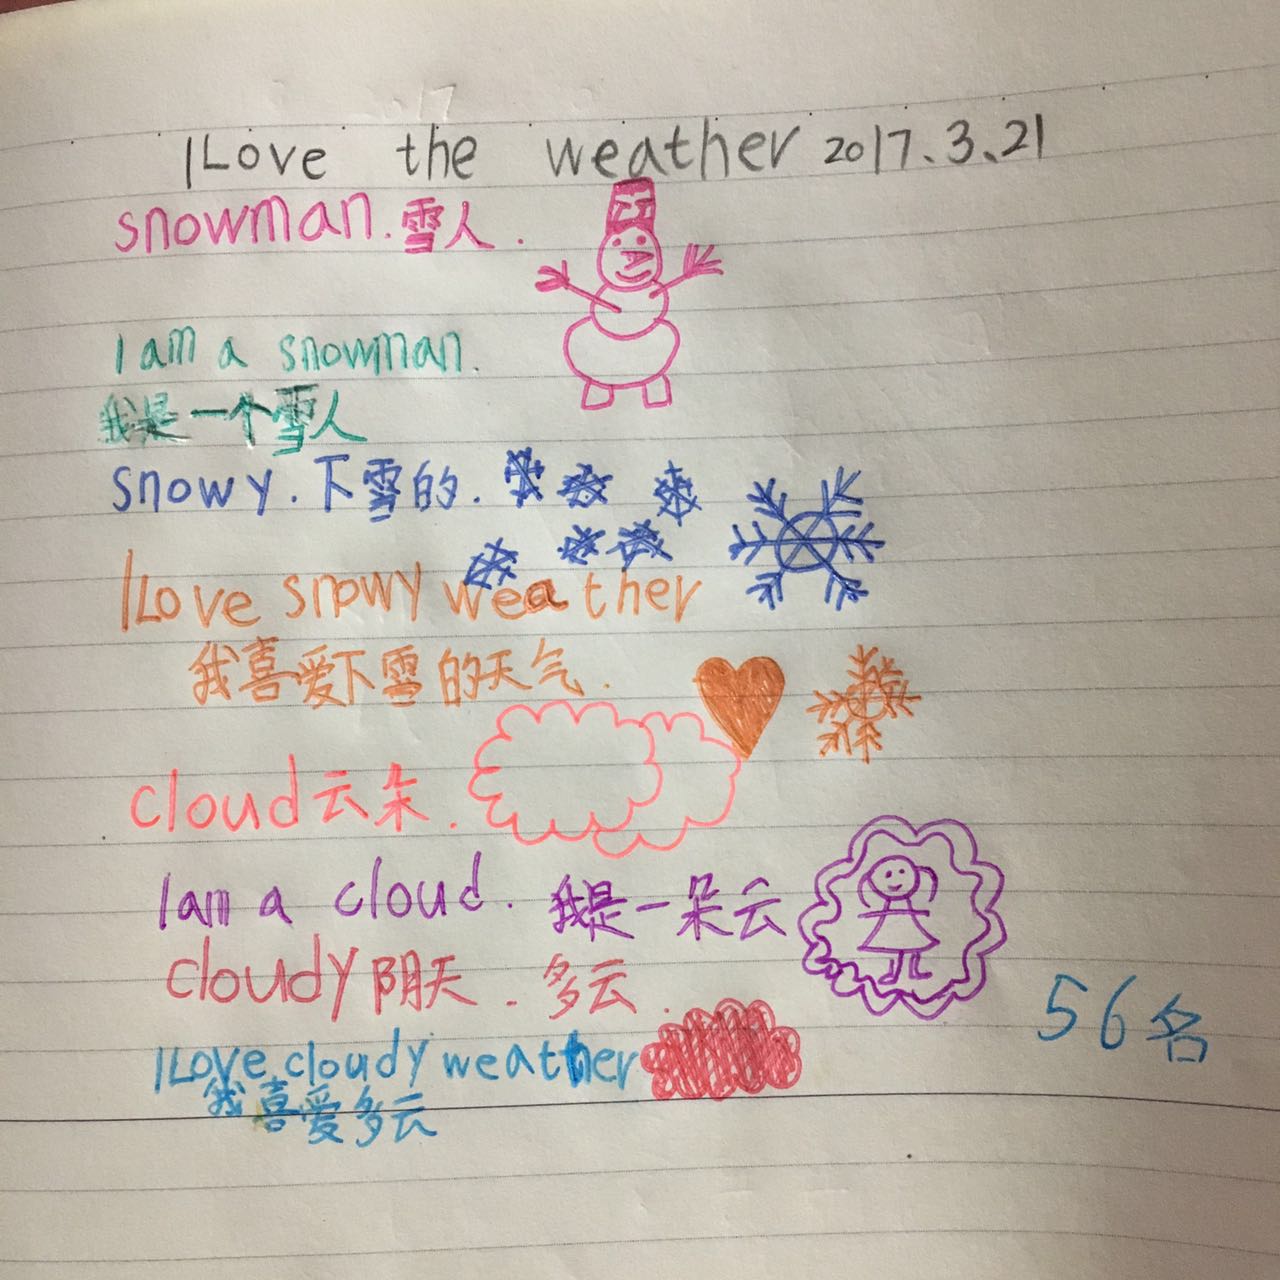 I Love the weather 2017.3.21
snowman.雪人.
I am a snowman.
我是一个雪人
snowy.下雪的.
I Love snowy weather
我喜爱下雪的天气.
cloud云朵.
I am a cloud. 我是一朵云
cloudy阴天.多云.
I Love cloudy weather
我喜爱多云
56名